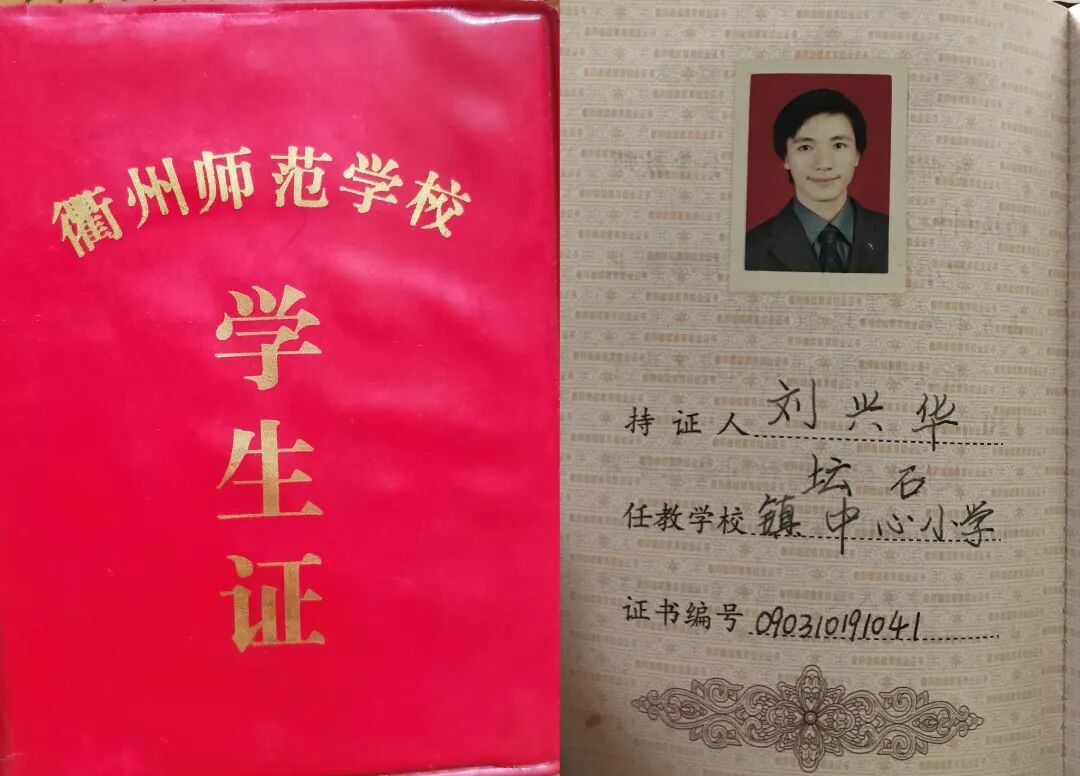 衢州师范学校
学生证
持证人 刘兴华
坛石
任教学校 镇中心小学
证书编号 090310191041